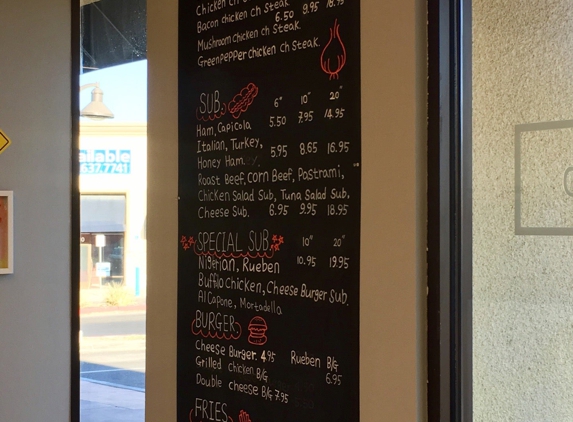 Chicken Ch Steak
Bacon chicken ch Steak 6.50 9.95 18.95
Mushroom chicken ch Steak
Greenpepper chicken ch Steak.
SUB. 6" 10" 20"
Ham, Capicola 5.50 7.95 14.95
Italian, Turkey,
Honey Ham. 5.95 8.65 16.95
Roast Beef, Corn Beef, Pastrami,
Chicken Salad Sub, Tuna Salad Sub,
Cheese Sub. 6.95 9.95 18.95
SPECIAL SUB 10" 20"
Nigerian, Rueben 10.95 19.95
Bufflo Chicken, Cheese Burger Sub,
Al Capone, Mortadella
BURGER
Cheese Burger. 4.95 Rueben B/G
Grilled chicken B/G 6.95
Double cheese B/G 7.95
FRIES
ailable
637.7741